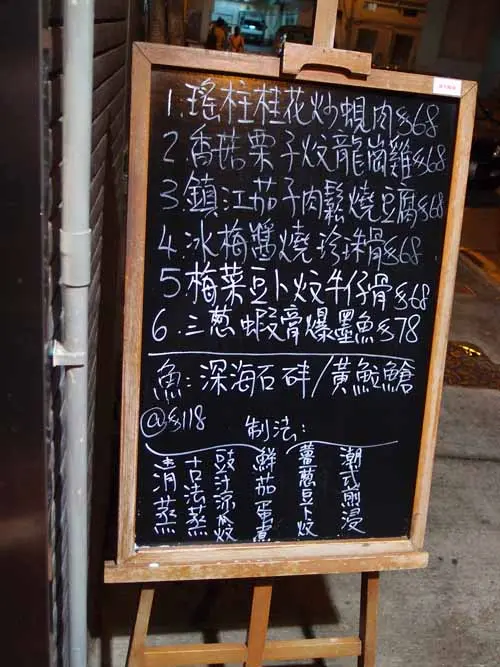 1.瑤柱桂花炒蜆肉$68
2.香菇栗子炆龍崗雞$68
3.鎮江茄子肉鬆燒豆腐$68
4.冰梅醬燒珍珠骨$68
5.梅菜豆卜炆牛仔骨$68
6.三蔥蝦膏爆墨魚$78
魚:深海石砵/黃䱽鯧
@$118
制法:
清蒸
古法蒸
豉汁涼瓜炆
鮮茄蛋煮
薑蔥豆卜炆
潮式煎浸